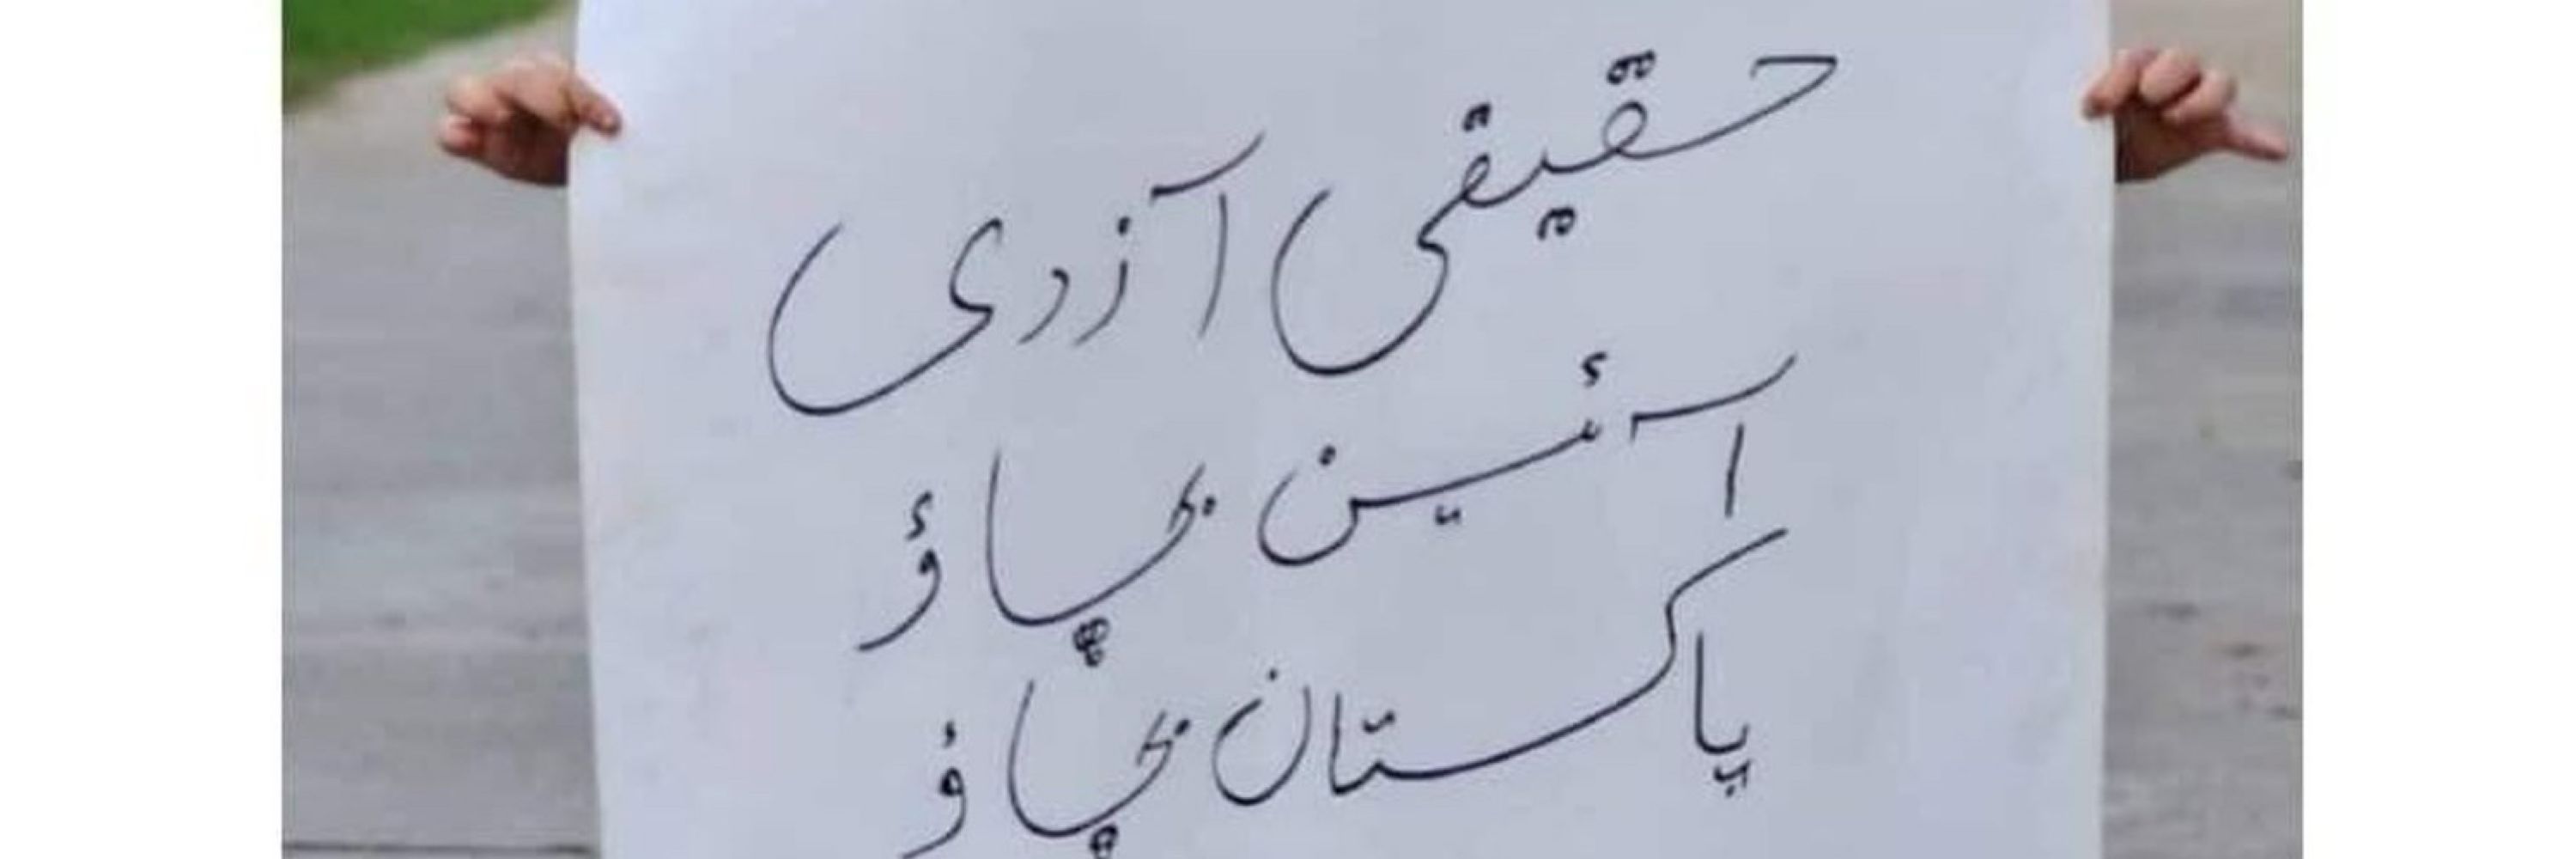 حقیقی آزدی
آئین بچاؤ
پاکستان بچاؤ